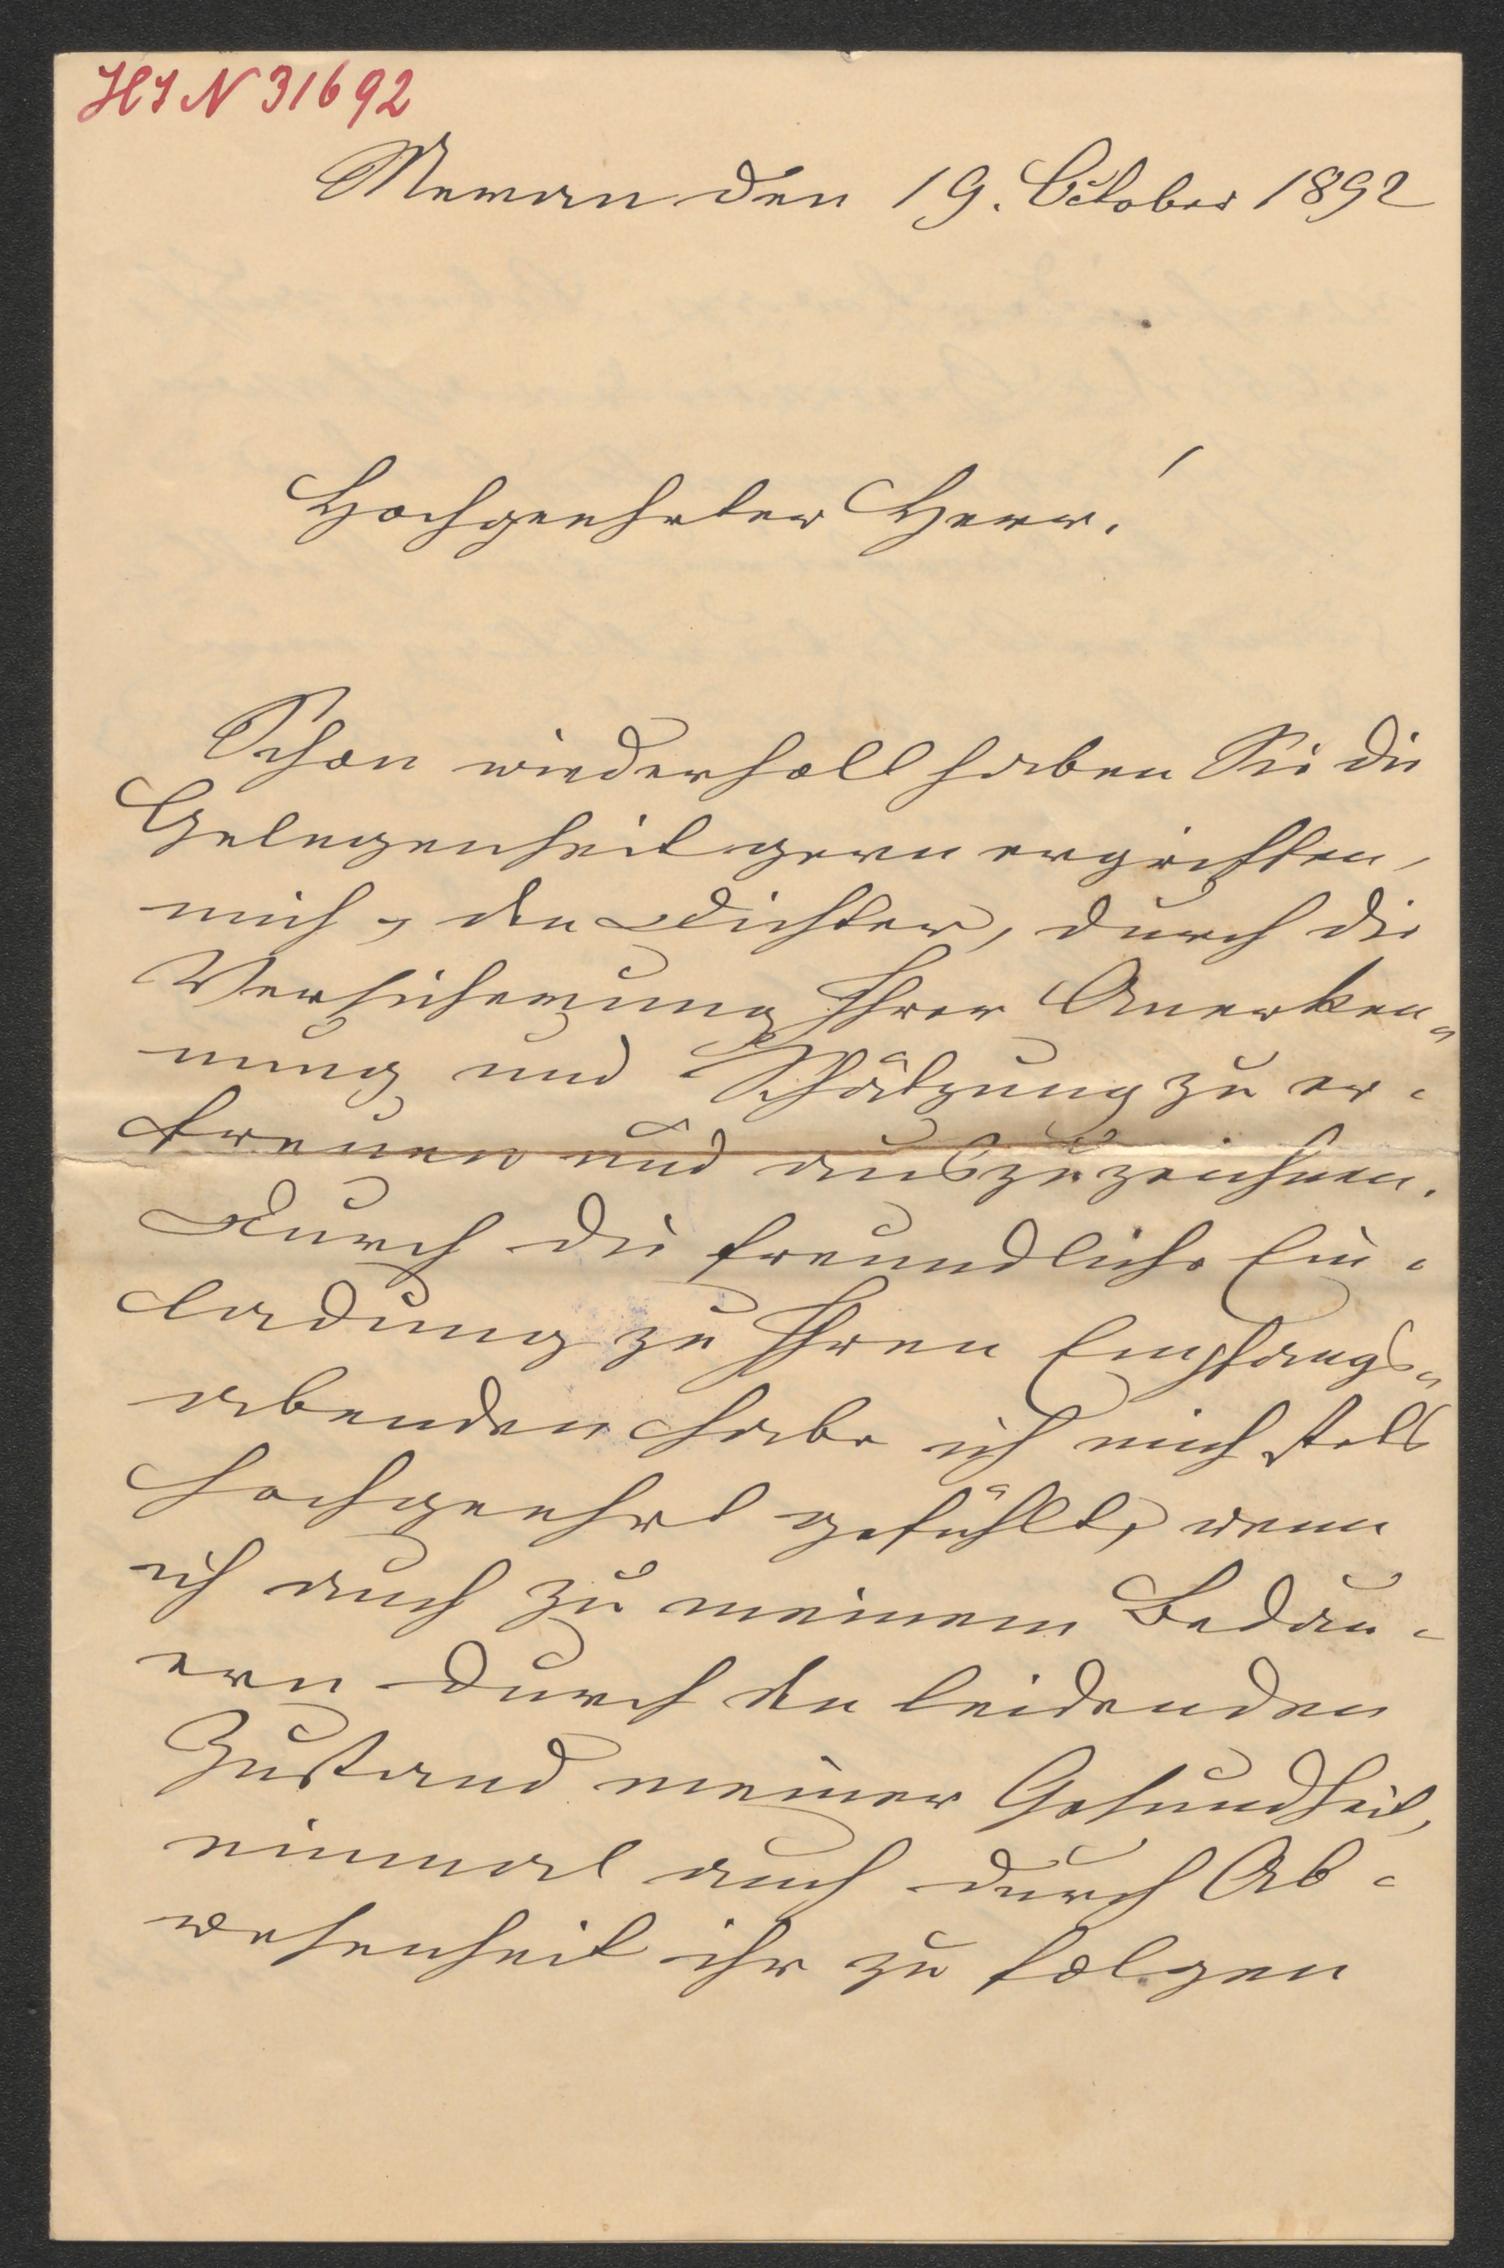 HIN 31692
Meran den 19. October 1892
Hochgeehrter Herr!
Schon wiederholt haben Sie die
Gelegenheit gern ergriffen,
mich, den Dichter, durch die
Versicherung Ihrer Anerken-
nung und Schätzung zu er-
freuen und auszuzeichnen.
Durch die freundliche Ein-
ladung zu Ihren Empfangs-
abenden habe ich mich stets
hochgeehrt gefühlt, wenn
ich auch zu meinem Bedau-
ern durch den leidenden
Zustand meiner Gesundheit,
einmal auch durch Ab-
wesenheit ihr zu folgen